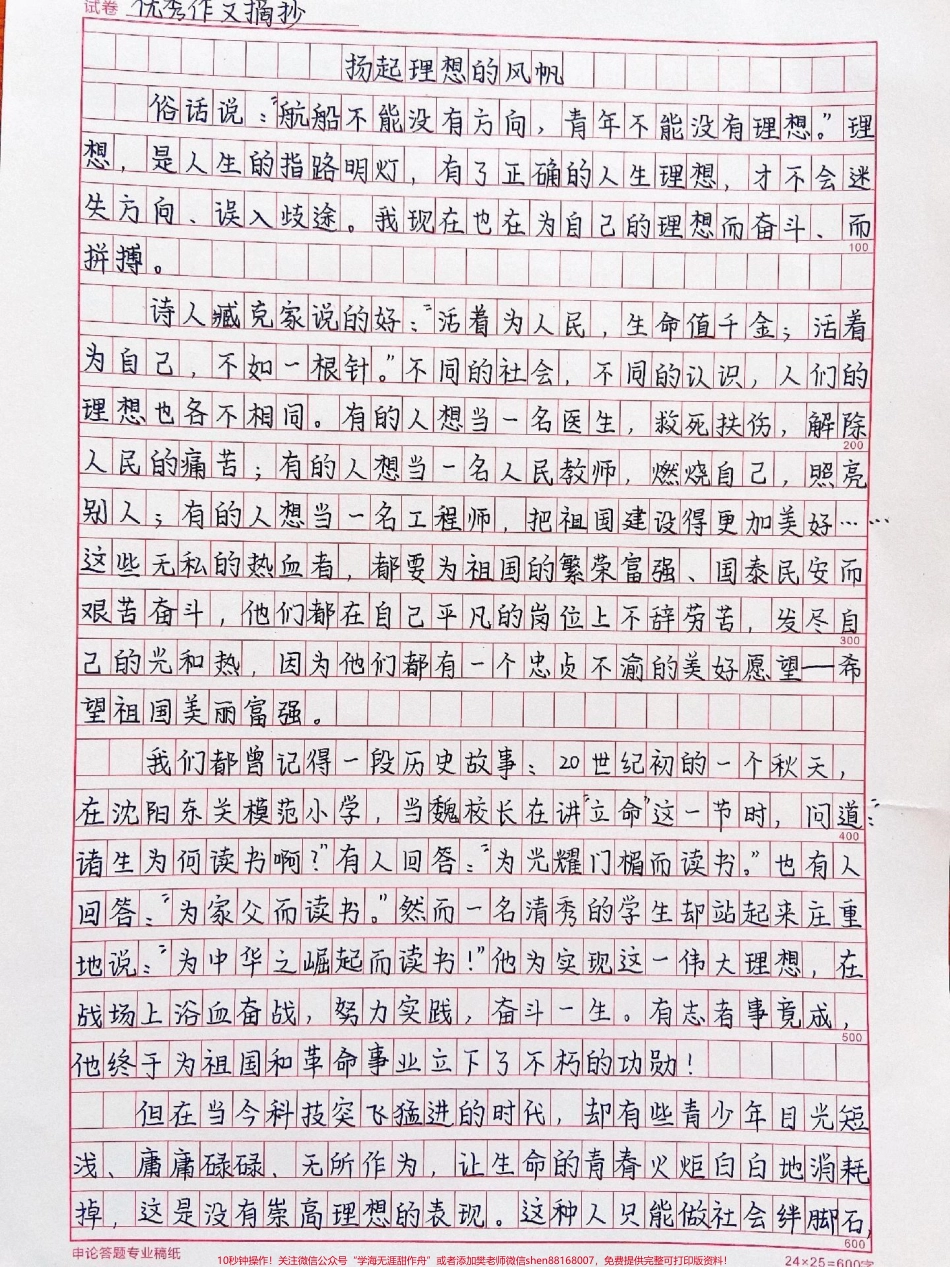 试卷 优秀作文摘抄
扬起理想的风帆
俗话说：“航船不能没有方向，青年不能没有理想。”理
想，是人生的指路明灯，有了正确的人生理想，才不会迷
失方向、误入歧途。我现在也在为自己的理想而奋斗、而
100
拼搏。
诗人臧克家说的好：“活着为人民，生命值千金；活着
为自己，不如一根针。”不同的社会，不同的认识，人们的
理想也各不相同。有的人想当一名医生，救死扶伤，解除
200
人民的痛苦；有的人想当一名人民教师，燃烧自己，照亮
别人；有的人想当一名工程师，把祖国建设得更加美好……
这些无私的热血者，都要为祖国的繁荣富强、国泰民安而
艰苦奋斗，他们都在自己平凡的岗位上不辞劳苦，发尽自
300
己的光和热，因为他们都有一个忠贞不渝的美好愿望—希
望祖国美丽富强。
我们都曾记得一段历史故事：20世纪初的一个秋天，
在沈阳东关模范小学，当魏校长在讲“立命”这一节时，问道：“
400
诸生为何读书啊？”有人回答：“为光耀门楣而读书。”也有人
回答：“为家父而读书。”然而一名清秀的学生却站起来庄重
地说：“为中华之崛起而读书！”他为实现这一伟大理想，在
战场上浴血奋战，努力实践，奋斗一生。有志者事竟成，
500
他终于为祖国和革命事业立下了不朽的功勋！
但在当今科技突飞猛进的时代，却有些青少年目光短
浅、庸庸碌碌、无所作为，让生命的青春火炬白白地消耗
掉，这是没有崇高理想的表现。这种人只能做社会绊脚石，
600
申论答题专业稿纸
24×25=600字
10秒钟操作！关注微信公众号“学海无涯甜作舟”或者添加樊老师微信shen88168007，免费提供完整可打印版资料！